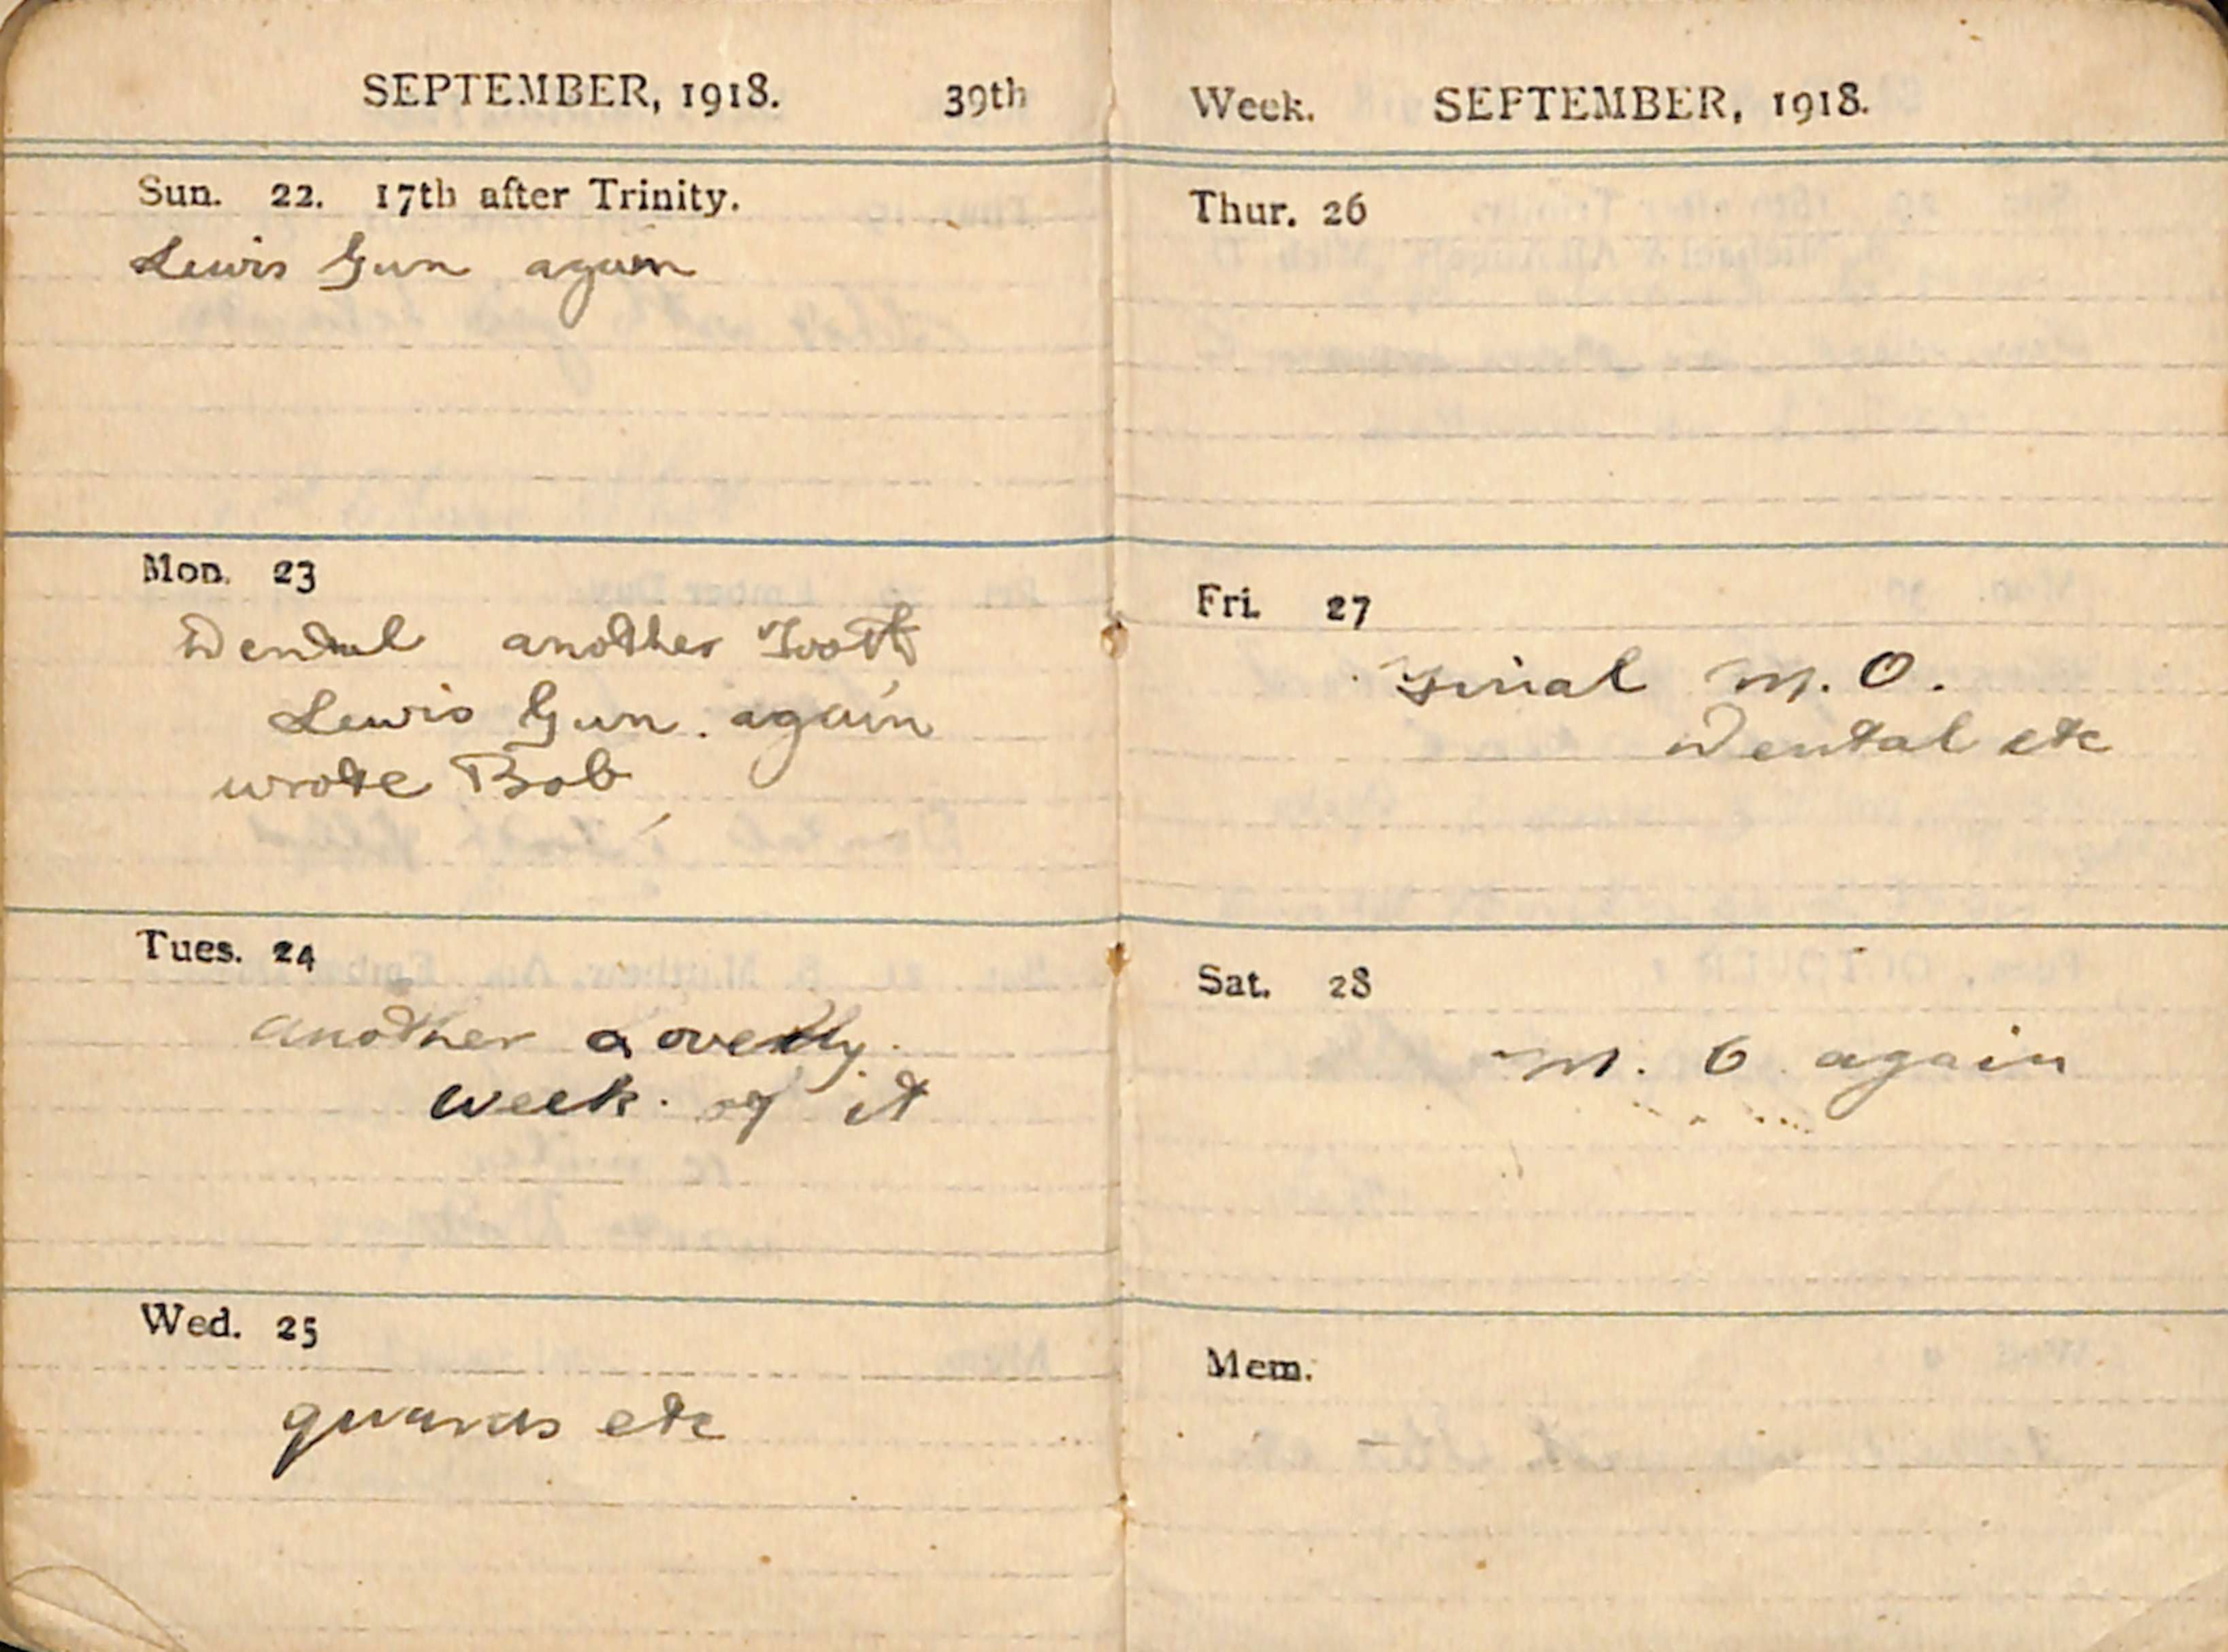 SEPTEMBER, 1918. 39th
Sun. 22. 17th after Trinity.
Lewis Gun again
Mon. 23
Dental another Tooth
Lewis Gun. again
wrote Bob
Tues. 24
another
week of it
Wed. 25
guards etc
Week. SEPTEMBER, 1918.
Thur. 26
Fri. 27
Final M.O.
Dental etc
Sat. 28
M. O again
Mem.